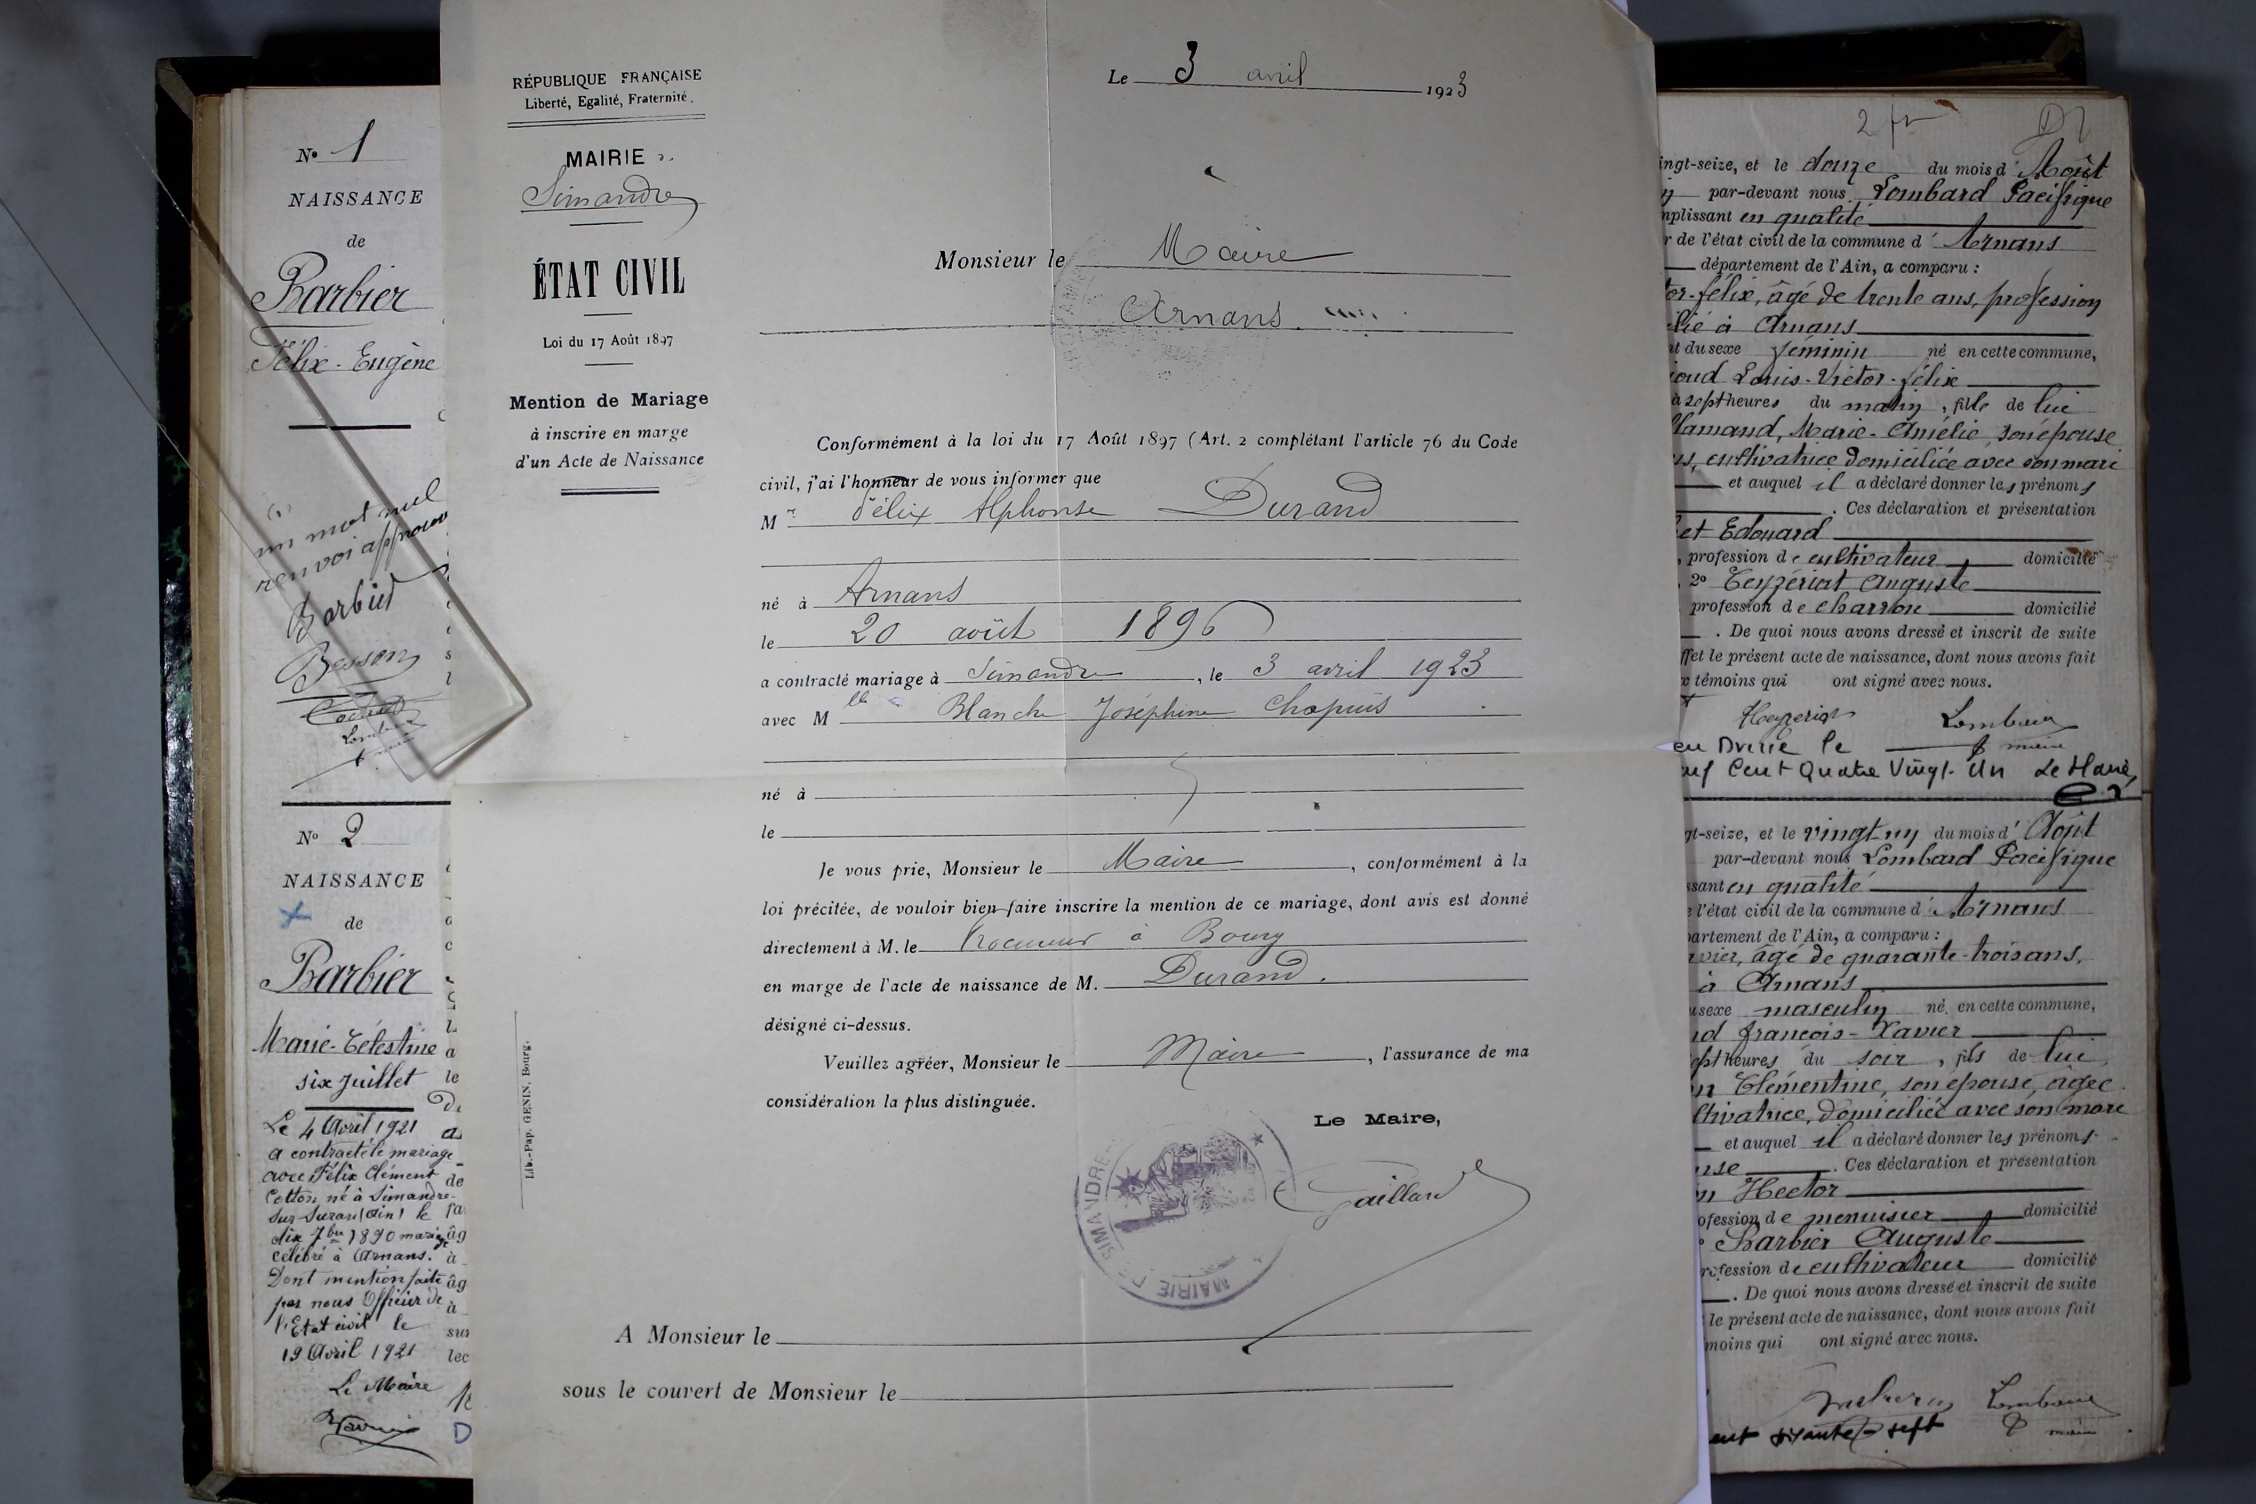 N° 1
NAISSANCE
de
Barbier
Félix-Eugène
(1)
un mot nul
renvoi approuvé
Barbier
Besson
Lombard
maire
N° 2
NAISSANCE
de
Barbier
Marie-Célestine
six Juillet
Le 4 Avril 1921
a contracté le mariage
avec Félix Clément
Cotton né à Simandre-
sur-Suran (Ain) le
dix 7bre 1890 mariage
célébré à Arnans.
Dont mention faite
par nous Officier de
l'Etat civil le
19 Avril 1921
Le Maire
RÉPUBLIQUE FRANÇAISE
Liberté, Egalité, Fraternité.
MAIRIE
Simandre
ÉTAT CIVIL
Loi du 17 Août 1897
Mention de Mariage
à inscrire en marge
d'un Acte de Naissance
Le 3 avril 1923
Monsieur le Maire
Arnans
Conformément à la loi du 17 Août 1897 (Art. 2 complétant l'article 76 du Code
civil, j'ai l'honneur de vous informer que
Mr Félix Alphonse Durand
né à Arnans
le 20 août 1896
a contracté mariage à Simandre, le 3 avril 1923
avec Mlle Blanche Joséphine Chapuis
né à
le
Je vous prie, Monsieur le Maire, conformément à la
loi précitée, de vouloir bien faire inscrire la mention de ce mariage, dont avis est donné
directement à M. le Procureur à Bourg
en marge de l'acte de naissance de M. Durand.
désigné ci-dessus.
Veuillez agréer, Monsieur le Maire, l'assurance de ma
considération la plus distinguée.
Le Maire,
Gaillard
MAIRIE DE SIMANDRE
A Monsieur le
sous le couvert de Monsieur le
Lib.-Pap. GENIN, Bourg.
2 fr
ingt-seize, et le douze du mois d'Août
par-devant nous Lombard Pacifique
mplissant en qualité
r de l'état civil de la commune d'Arnans
département de l'Ain, a comparu :
tor-félix, âgé de trente ans, profession
lié à Arnans
nt du sexe féminin né en cette commune,
ioud Louis-Victor-félix
à sept heures du matin, fille de lui
llamand, Marie-Amélie, son épouse
us, cultivatrice domiciliée avec son mari
et auquel il a déclaré donner les prénoms
. Ces déclaration et présentation
et Edouard
, profession de cultivateur domicilié
2° Teyzériat Auguste
profession de charron domicilié
. De quoi nous avons dressé et inscrit de suite
ffet le présent acte de naissance, dont nous avons fait
x témoins qui ont signé avec nous.
Teyzeriat Lombard
maire
le
uf Cent Quatre Vingt. Un Le Maire
gt-seize, et le vingt un du mois d'Août
par-devant nous Lombard Pacifique
ssant en qualité
e l'état civil de la commune d'Arnans
partement de l'Ain, a comparu :
avier, âgé de quarante-trois ans,
à Arnans
u sexe masculin né en cette commune,
nd françois-Xavier
ept heures du soir, fils de lui
on Clémentine, son épouse, âgée
ltivatrice, domiciliée avec son mari
et auquel il a déclaré donner les prénoms
nse. Ces déclaration et présentation
n Hector
ofession de menuisier domicilié
° Barbier Auguste
rofession de cultivateur domicilié
. De quoi nous avons dressé et inscrit de suite
le présent acte de naissance, dont nous avons fait
moins qui ont signé avec nous.
Lombard
maire
ent soixante-sept